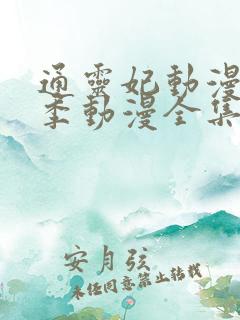 通靈妃動漫
季動漫全集
安月弦
未任同意禁止转载